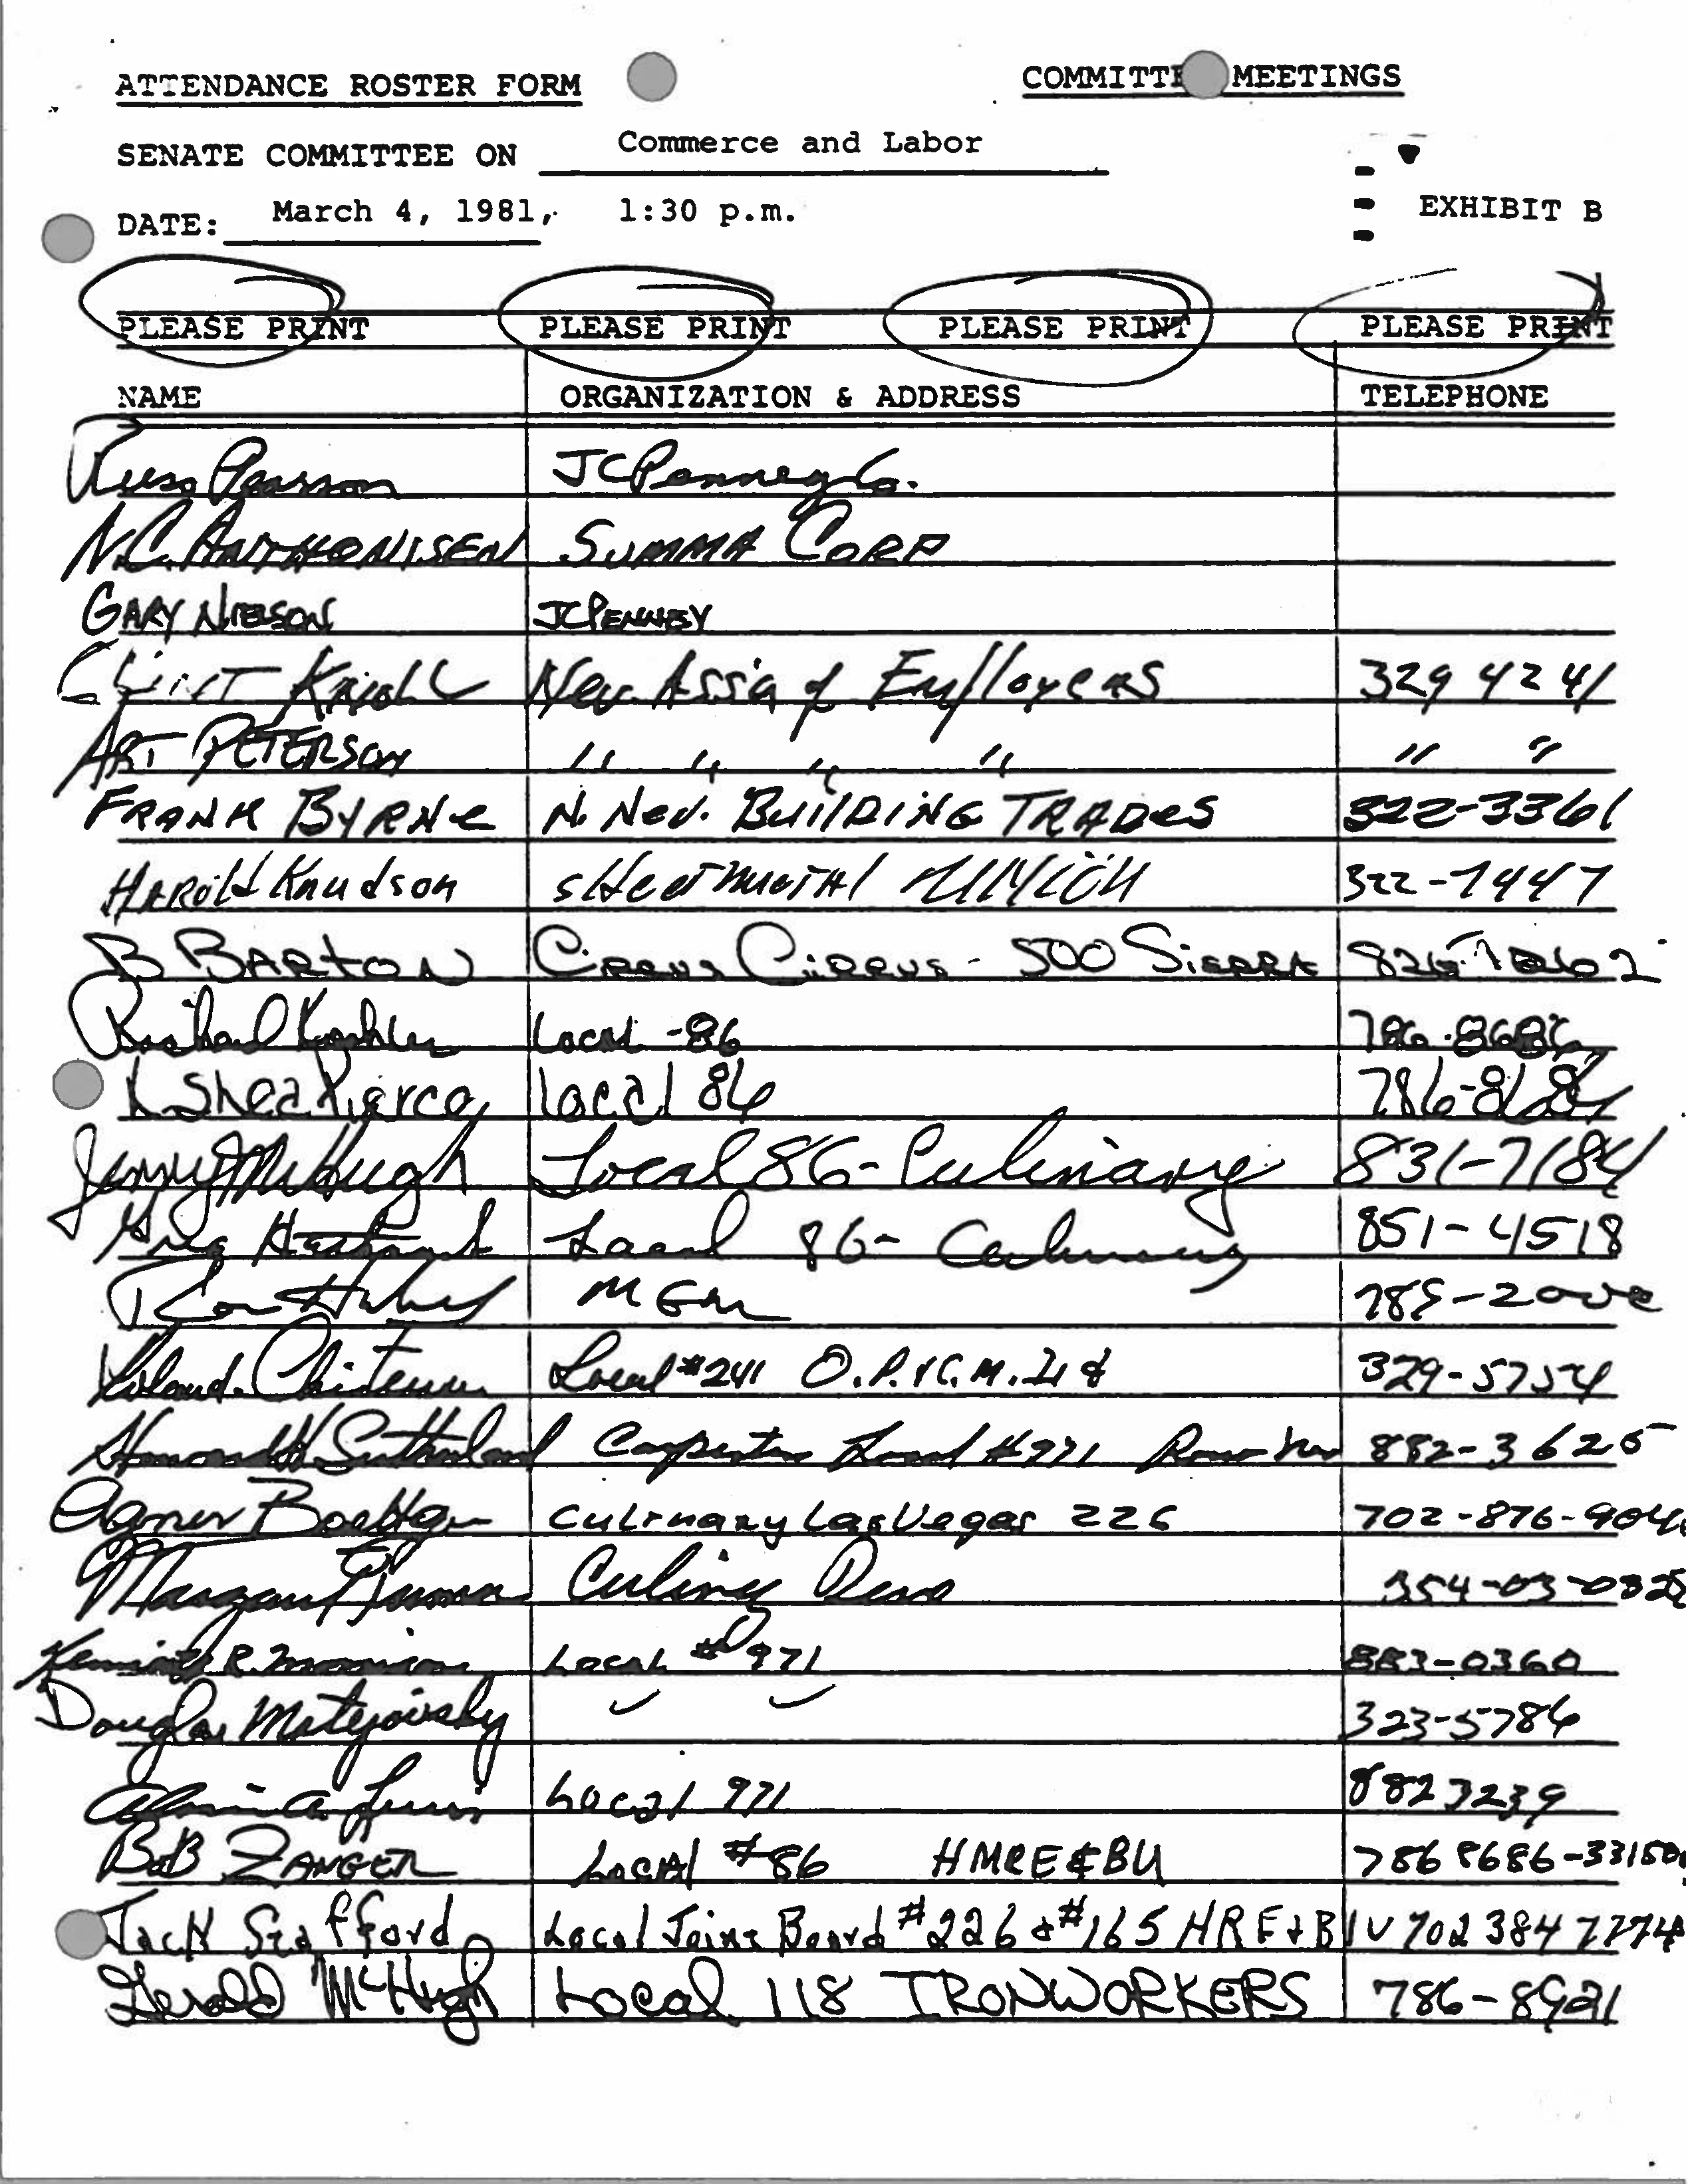 ATTENDANCE ROSTER FORM COMMITTE MEETINGS
SENATE COMMITTEE ON Commerce and Labor
DATE: March 4, 1981, 1:30 p.m. EXHIBIT B
PLEASE PRINT PLEASE PRINT PLEASE PRINT PLEASE PRINT
NAME ORGANIZATION & ADDRESS TELEPHONE
Russ Pearson JCPenney Co.
N.C. ANTHONISEN SUMMA CORP
GARY NIELSON JCPENNEY
CLINT Knoll Nev. Assn of Employers 329 4241
ART PETERSON " " " " " "
FRANK BYRNe N. Nev. BuilDiNG TRADes 322-3361
HAROld Knudson sHeetmetAl UNION 322-7447
B BARTON Circus Circus - 500 SIERRA
Richard Local -86 786-8686
K Shea Pierce local 86
Jenny McHugh Local 86- Culinary 831-7184
Local 86- Culinary 851-4518
Ron MGM 785-2000
Local #241 O.P.&C.M. 329-5754
Sutherland Carpenters Local #971 882-3625
Agnes Boettger Culinary Las Vegas 226 702-876-904
Culinary Reno 354-03-032
Kenneth R. Morrison Local #971 883-0360
Douglas Matejovsky 323-5786
Local 971 882 3239
BoB ZANGER LocAl #86 HMRE&BU 786 8686-33150
Jack Stafford Local Joint Board #226 & #165 HRE&BIU 702 384 7774
Gerald McHugh Local 118 IRONWORKERS 786-8921